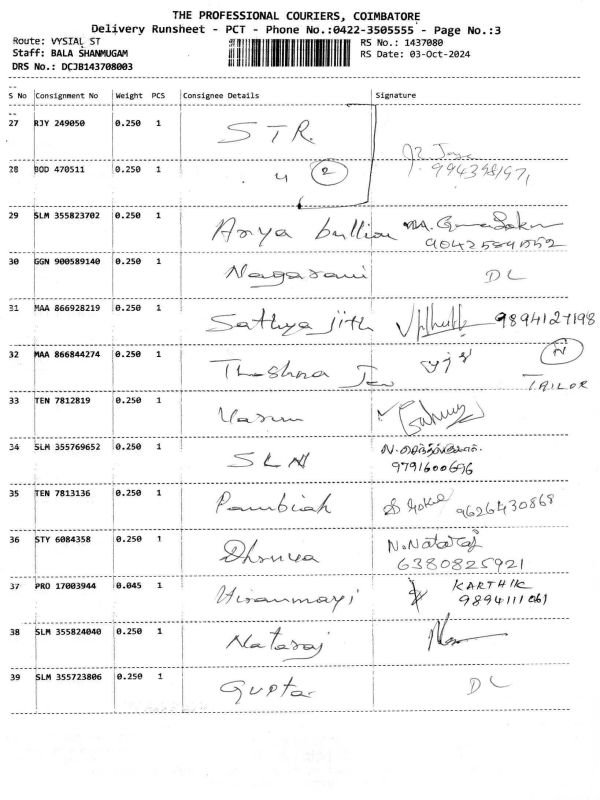 THE PROFESSIONAL COURIERS, COIMBATORE
Delivery Runsheet - PCT - Phone No.:0422-3505555 - Page No.:3
Route: VYSIAL ST RS No.: 1437080
Staff: BALA SHANMUGAM RS Date: 03-Oct-2024
DRS No.: DCJB143708003
S No Consignment No Weight PCS Consignee Details Signature
27 RJY 249050 0.250 1 STR.
28 BOD 470511 0.250 1 " 2
29 SLM 355823702 0.250 1 Arya bullion
30 GGN 900589140 0.250 1 Nagarani DL
31 MAA 866928219 0.250 1 Sathya jith 9894127198
32 MAA 866844274 0.250 1
TAILOR
33 TEN 7812819 0.250 1 Varun
34 SLM 355769652 0.250 1 SLN
9791600696
35 TEN 7813136 0.250 1 Pambiah 9626430868
36 STY 6084358 0.250 1 Dhruva N.Nataraj
6380825921
37 PRO 17003944 0.045 1 Hiranmayi KARTHIK
9894111061
38 SLM 355824040 0.250 1 Nataraj
39 SLM 355723806 0.250 1 Gupta DL